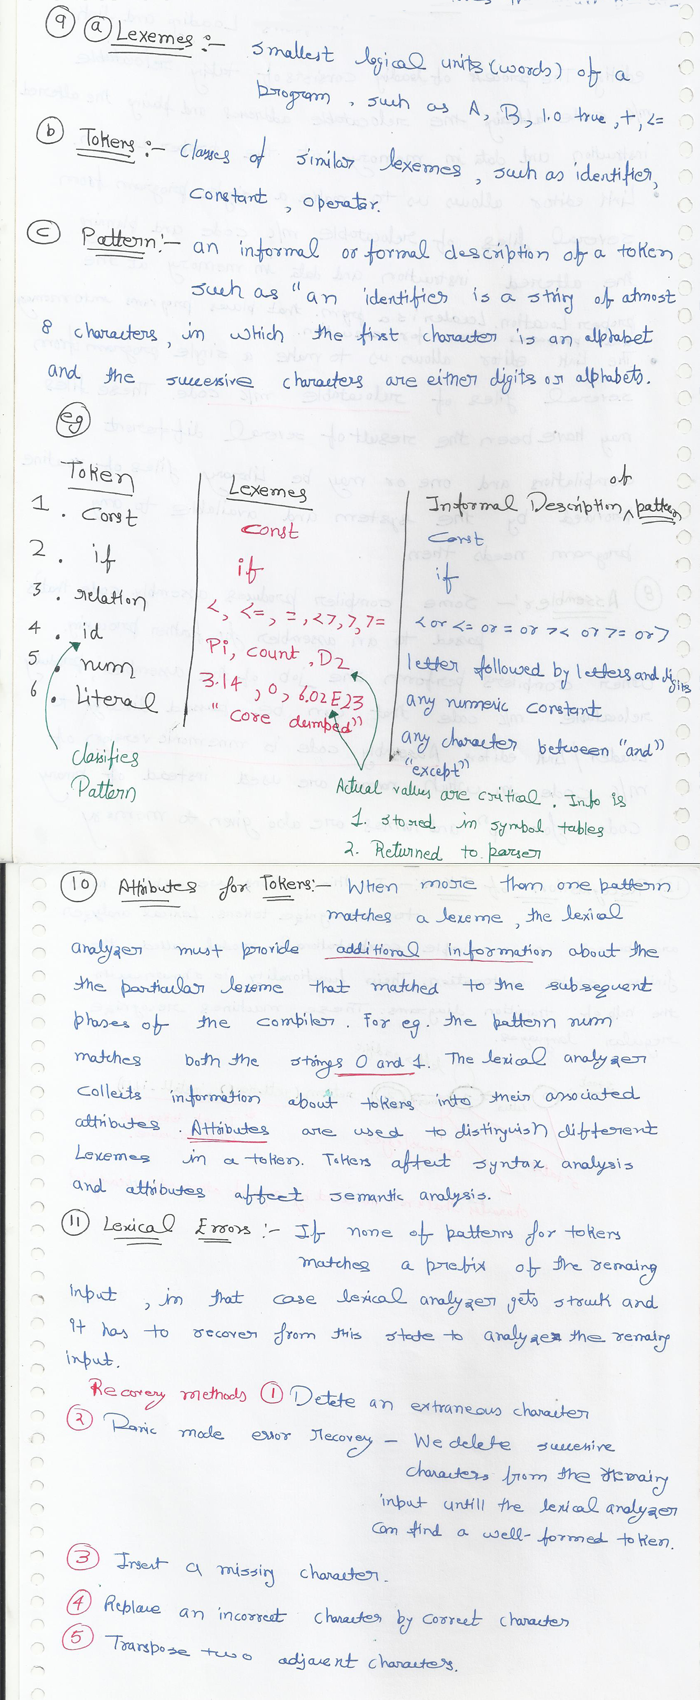 9 a Lexemes :- Smallest logical units (words) of a
program, such as A, B, 1.0 true, +, <=
b Tokens :- Classes of similar lexemes, such as identifier,
constant, operator.
c Pattern :- an informal or formal description of a token
such as "an identifier is a string of atmost
8 characters, in which the first character is an alphabet
and the successive characters are either digits or alphabets.
eg
Token Lexemes Informal Description of pattern
1. Const const Const
2. if if if
3. relation <, <=, =, <>, >, >= < or <= or = or >< or >= or >
4. id Pi, count, D2 letter followed by letters and digits
5. num 3.14, 0, 6.02E23 any numeric constant
6. Literal "core dumped" any character between "and"
"except"
classifies
Pattern
Actual values are critical. Info is
1. stored in symbol tables
2. Returned to parser
10 Attributes for Tokens :- When more than one pattern
matches a lexeme, the lexical
analyzer must provide additional information about the
the particular lexeme that matched to the subsequent
phases of the compiler. For eg. the pattern num
matches both the strings 0 and 1. The lexical analyzer
collects information about tokens into their associated
attributes. Attributes are used to distinguish different
Lexemes in a token. Tokens affect syntax analysis
and attributes affect semantic analysis.
11 Lexical Errors :- If none of patterns for tokens
matches a prefix of the remaing
input, in that case lexical analyzer gets struk and
it has to recover from this state to analyze the remaing
input.
Recovery methods 1 Delete an extraneous character
2 Panic mode error recovey - We delete successive
characters from the remaing
input untill the lexical analyzer
can find a well-formed token.
3 Insert a missing character.
4 Replace an incorrect character by correct character
5 Transpose two adjacent characters.